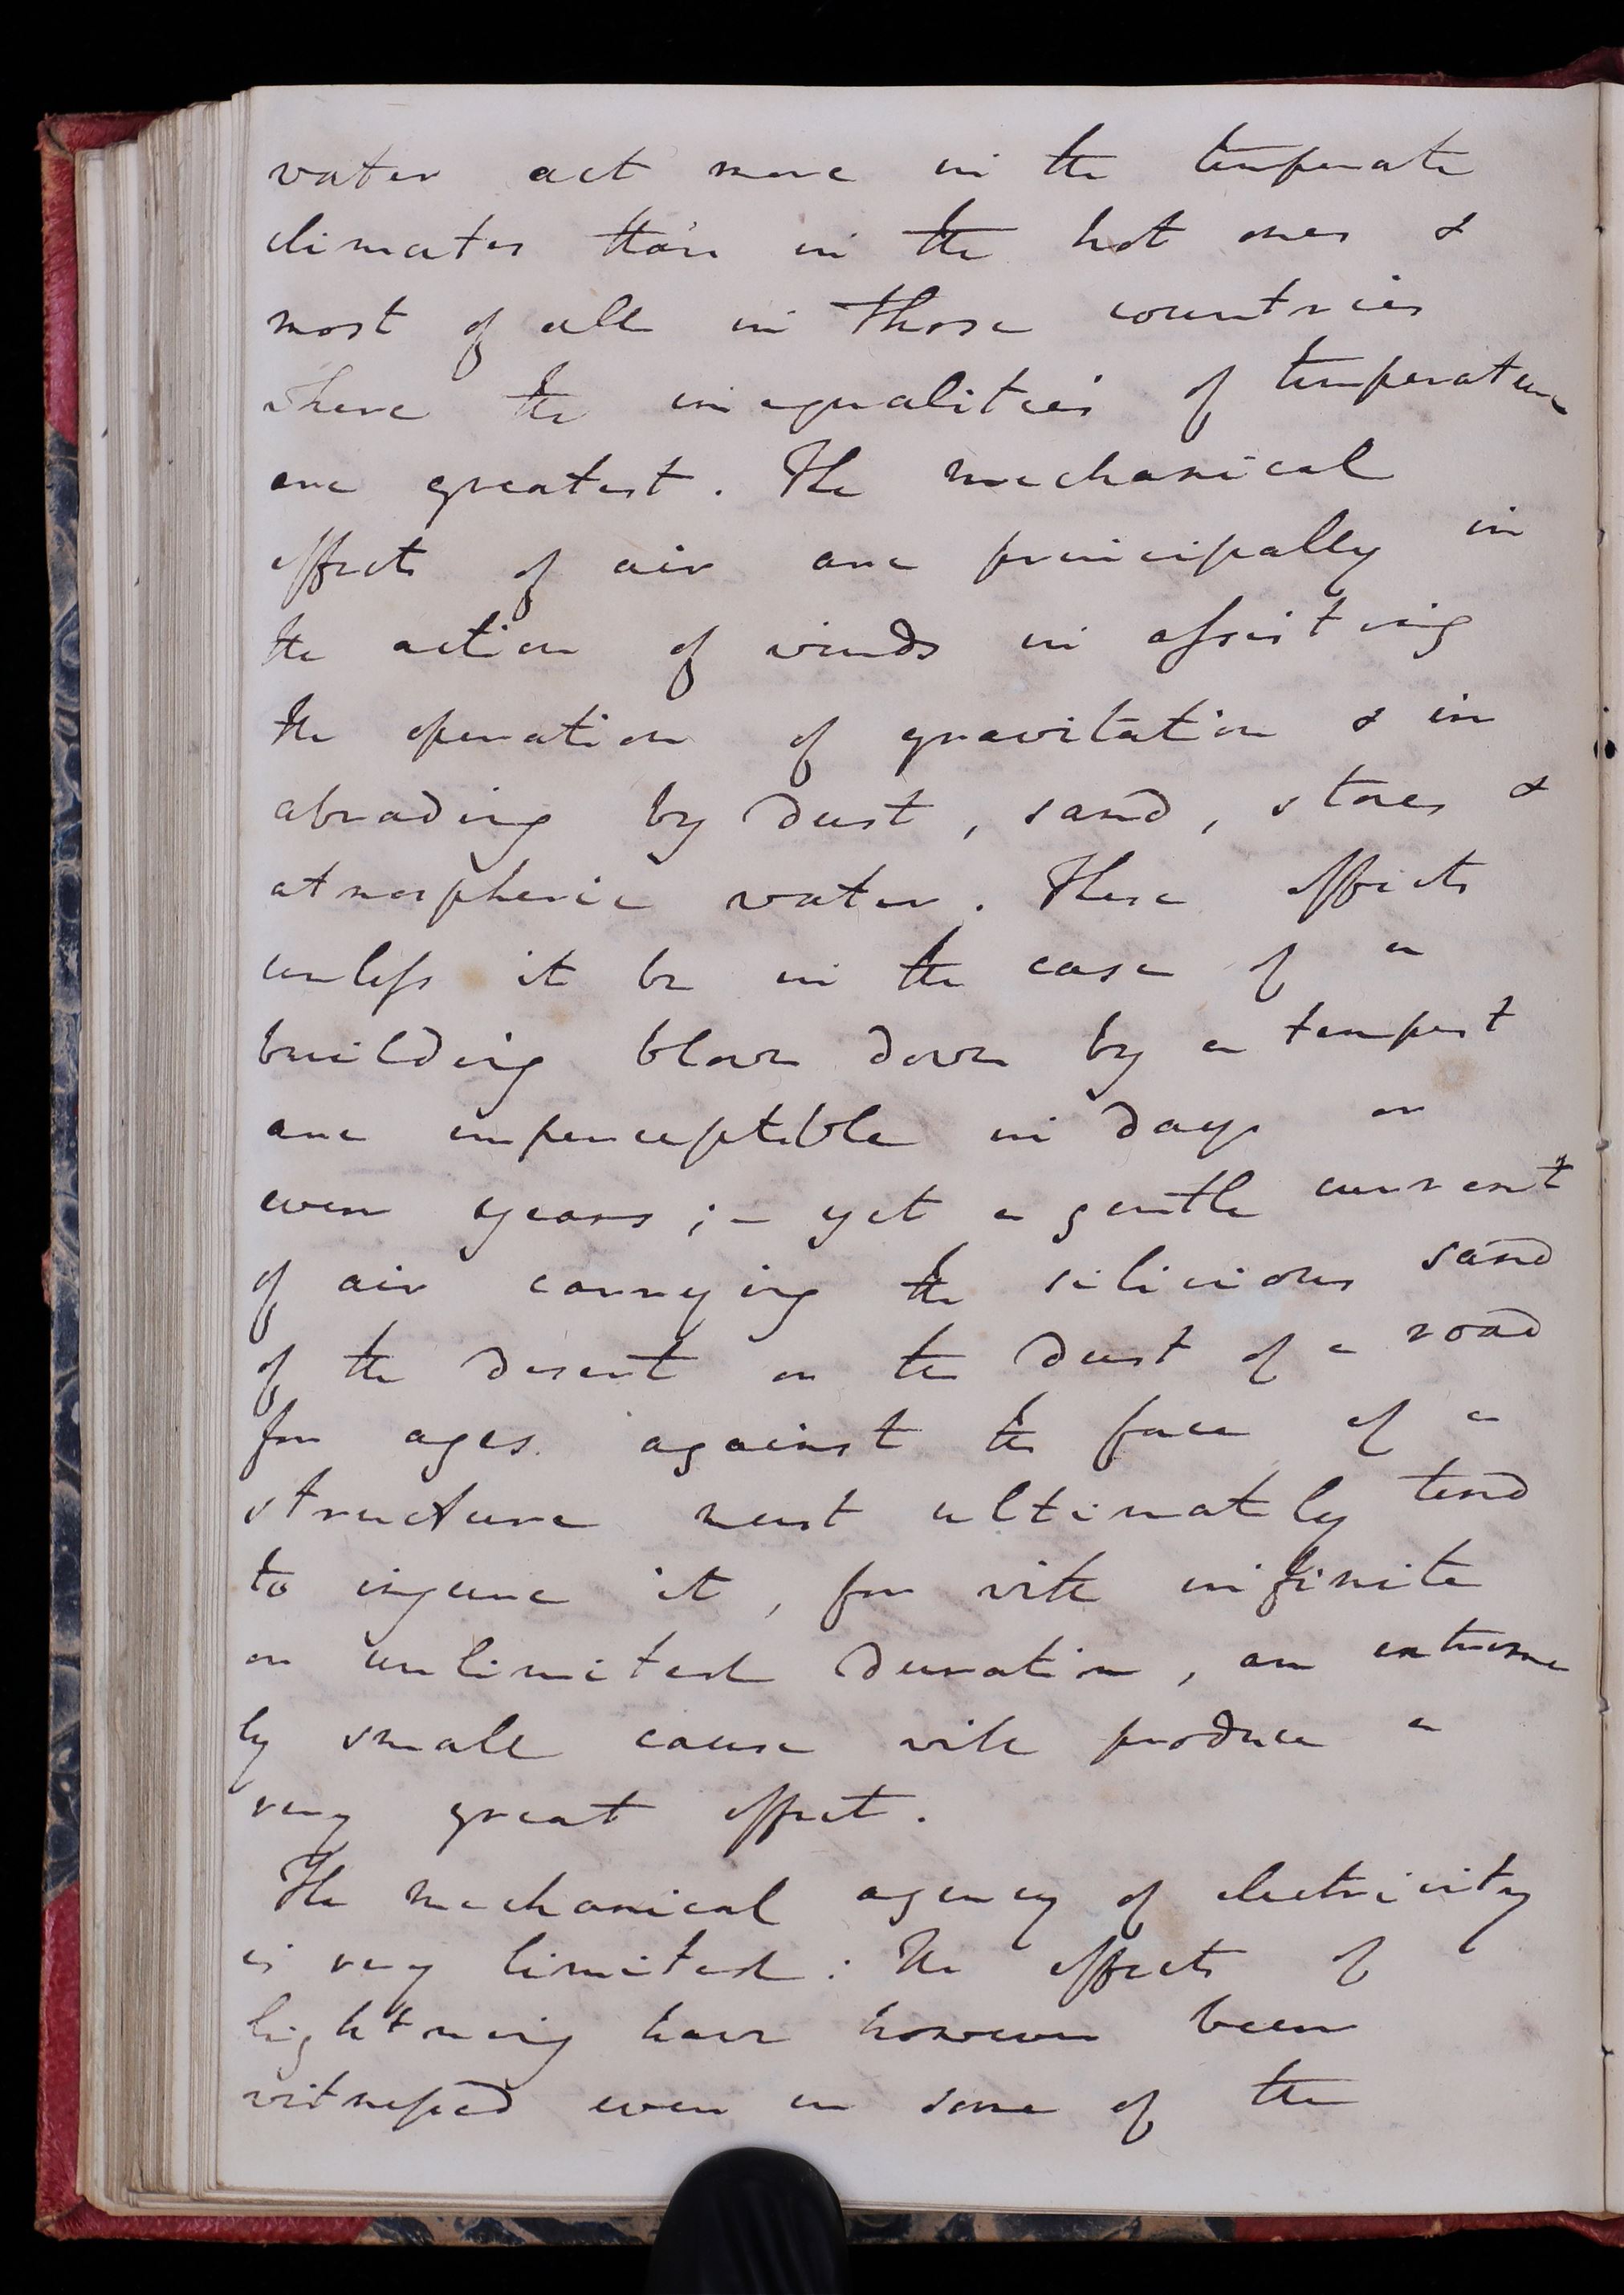 water act more in the temperate
climates than in the hot ones &
most of all in those countries
where the inequalities of temperature
are greatest. The mechanical
effects of air are principally in
the action of winds in assisting
the operation of gravitation & in
abrading by dust, sand, stones &
atmospheric water. These effects
unless it be in the case of a
building blown down by a tempest
are imperceptible in days or
even years; - yet a gentle current
of air carrying the silicious sand
of the desert or the dust of a road
for ages against the face of a
structure must ultimately tend
to injure it, for with infinite
or unlimited duration, an extreme
ly small cause will produce a
very great effect.
The mechanical agency of electricity
is very limited: the effects of
lightning have however been
witnessed even in some of the